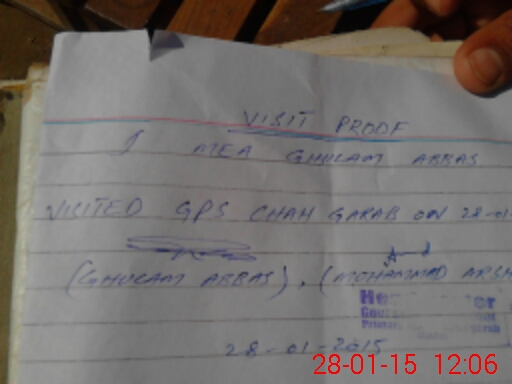 VISIT PROOF
I MEA GHULAM ABBAS
VISITED GPS CHAH GARAB ON 28-01
(GHULAM ABBAS), (MOHAMMAD ARSH
28-01-2015
28-01-15 12:06